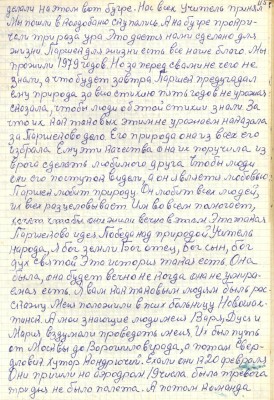 делали на этом вот бугре. Нас всех Учитель принял
Мы пошли в воздобано искупались. А на бугре прокри-
чали природа ура. Это дается нами сделано для
жизни. Паршек для жизни есть все наше благо. Мы
прожили 1979 годов. Но за перед своим не чего не
знали, а что будет завтра. Паршек предугадал
ему природа за всю стихию пять годов не урожая
сказала, чтобы люди об этой стихии знали. За
что их как таковых этим не урожаем наказала,
за Паршеково дело. Его природа одна из всех его
избрала. Ему эти качества она их поручила из
врага сделать любимого друга, чтобы люди
они его поступок видели, а он является любовью.
Паршек любит природу. Он любит всех людей,
их всех разцеловывает. Им во всем помогает,
хочет чтобы они жили вечно в этом. Это такая
Паршекова идея. Победа над природой Учителя
народа, я бог земли. Бог отец, бог сын, бог
дух святой. Это история такая есть. Она
была, она будет вечно не когда она не умира-
емая есть. Я вам как таковым людям быль рас-
скажу. Меня положили в псих больницу Новошах-
тинск. А мои знающие люди меня Варя, Дуся и
Мария вздумали проведать меня. Их был путь
от Москвы до Ворошиловграда, а потом Свер-
дловск хутор Кондрючий. Ехали они 120 февраля
Они пришли на аэродром 19 числа, была тревога
три дня не было полета. А потом команда